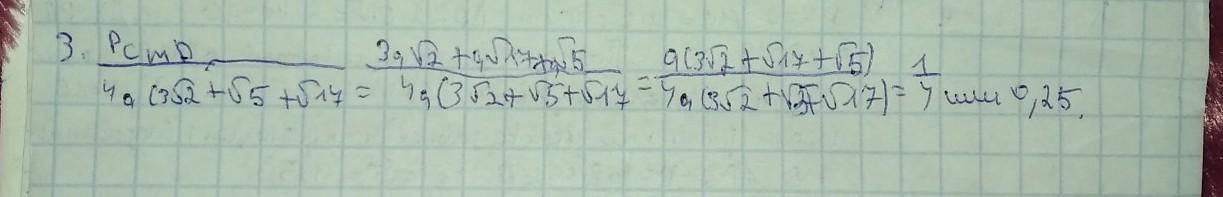 3. P_CMD / 4a(3√2+√5+√17 = 3a√2+a√17+a√5 / 4a(3√2+√5+√17 = a(3√2+√17+√5) / 4a(3√2+√5+√17) = 1/4 или 0,25.